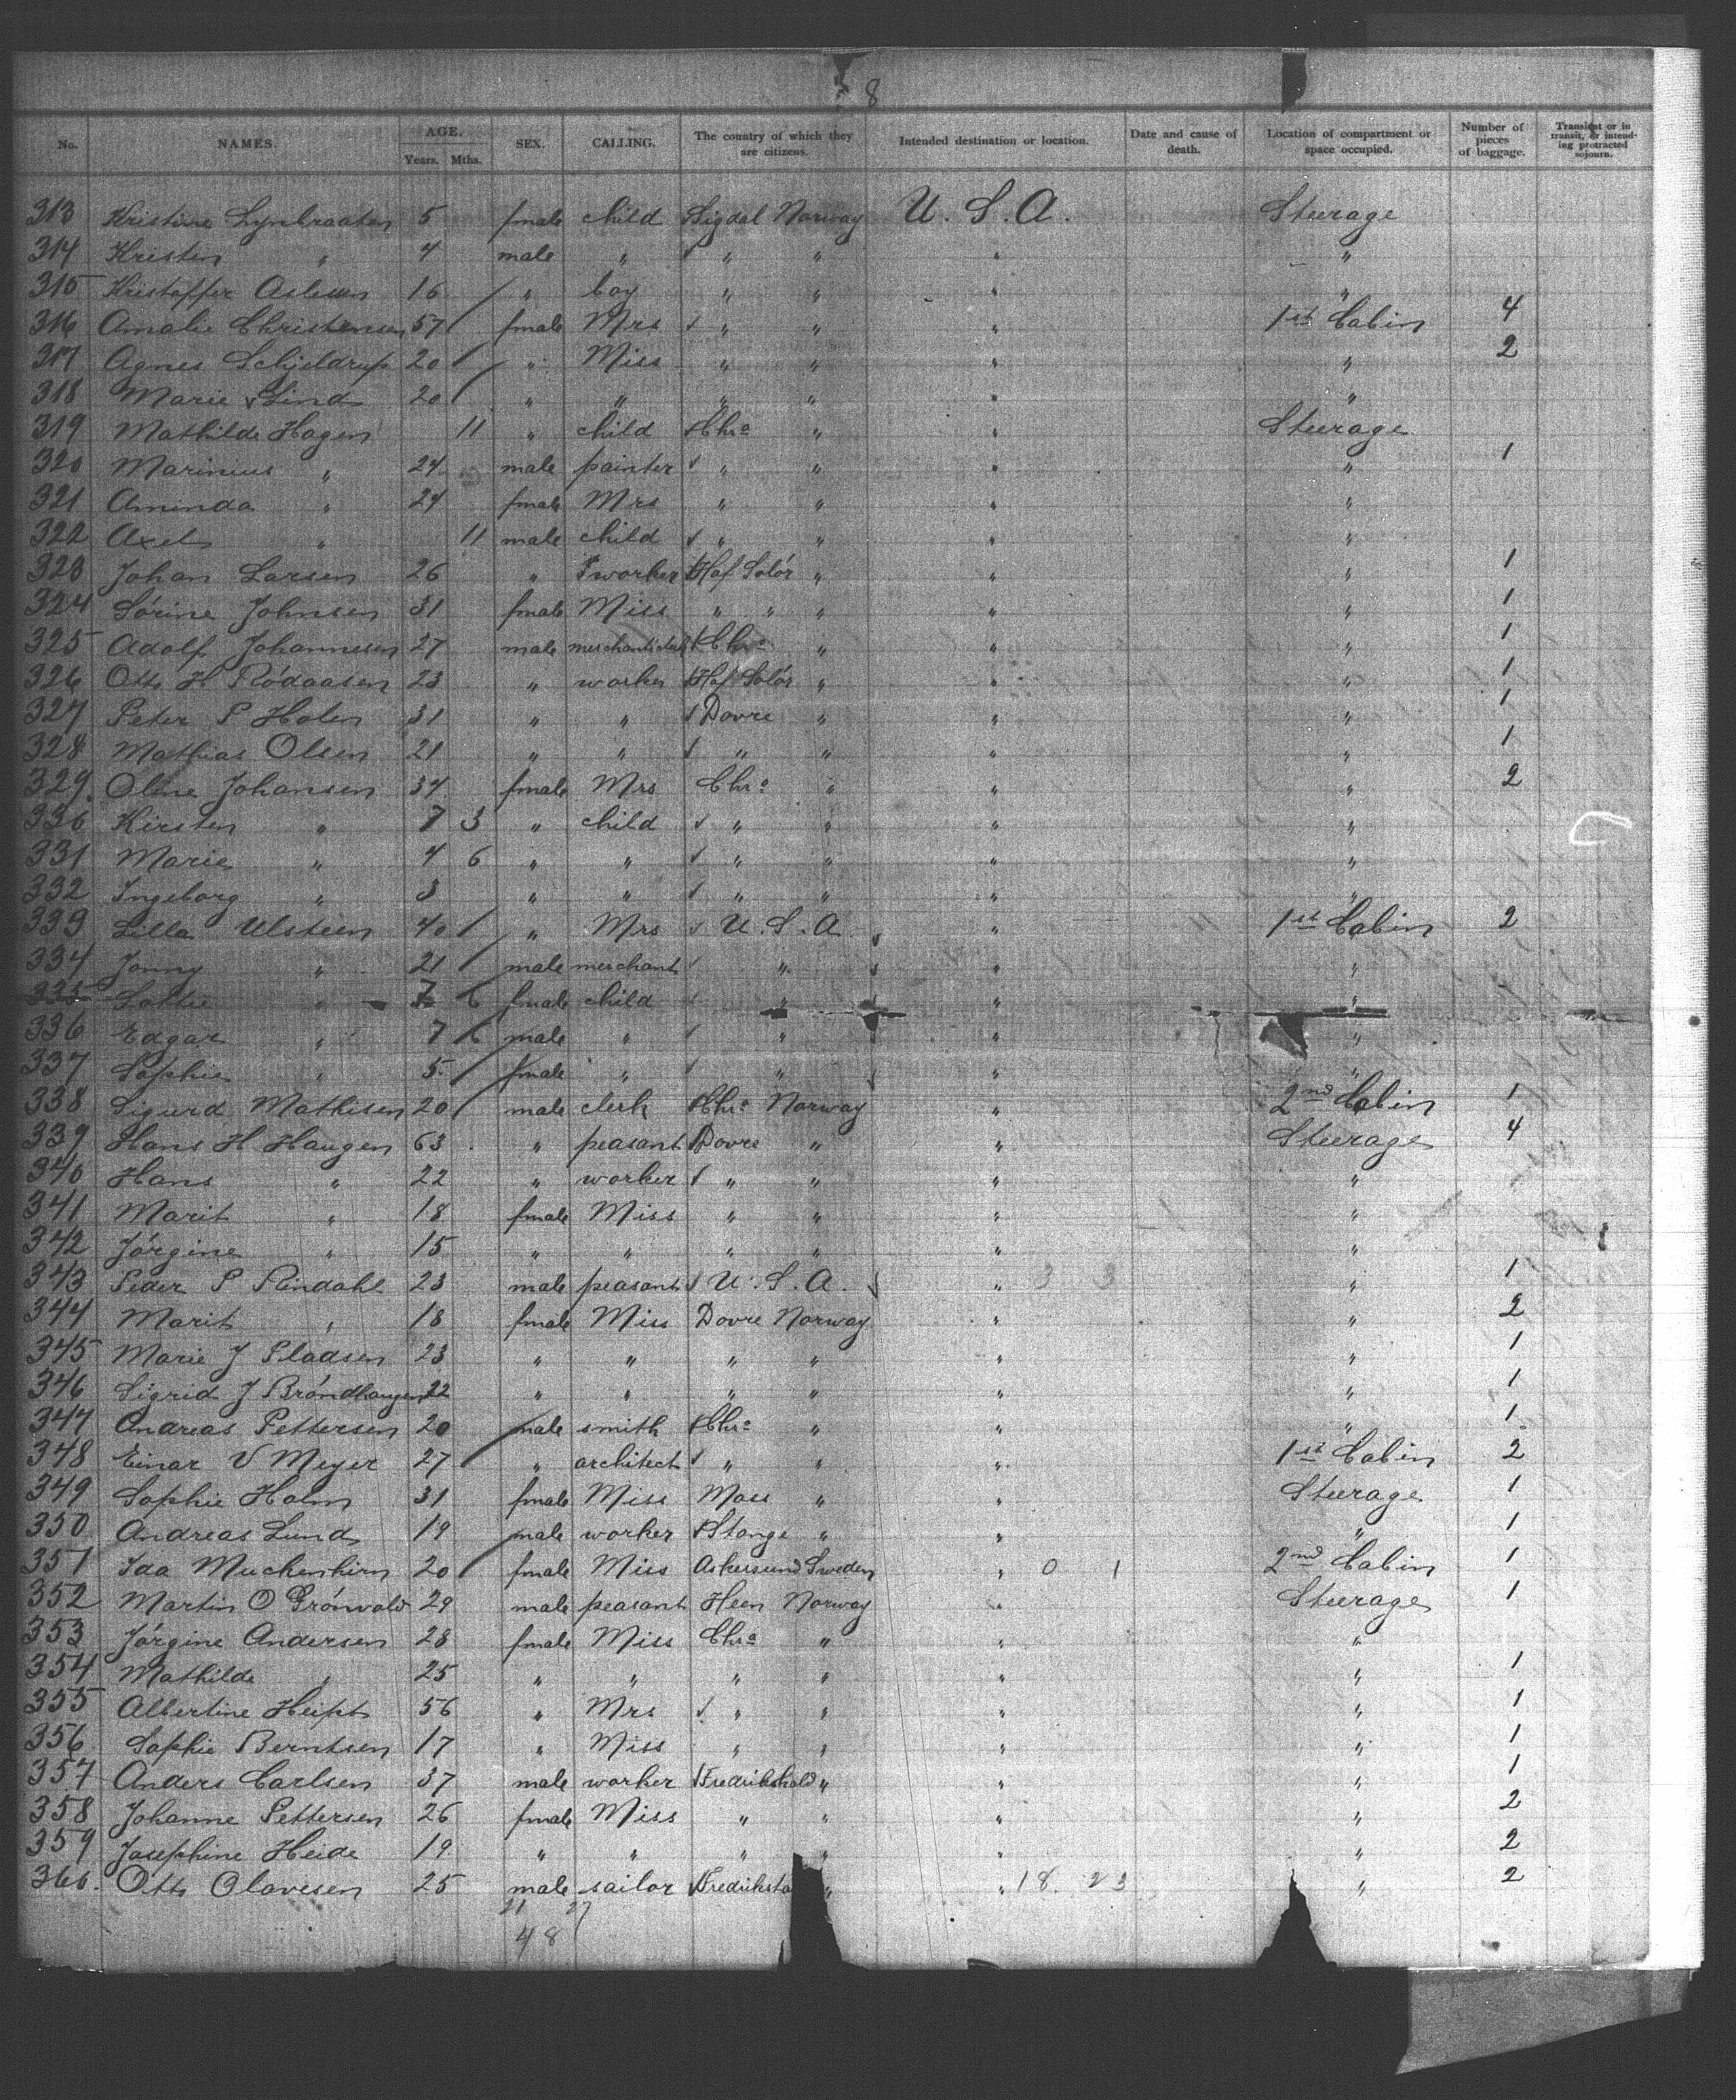 8
No. NAMES. AGE. Years. Mths. SEX. CALLING. The country of which they are citizens. Intended destination or location. Date and cause of death. Location of compartment or space occupied. Number of pieces of baggage. Transient or in transit, or intending protracted sojourn.
313 Kristine Lynbraaten 5 fmale child Sigdal Norway U. S. A. Steerage
314 Kristen " 4 male " " " " "
315 Kristoffer Aslesen 16 " boy " " " "
316 Amalie Christensen 57 fmale Mrs " " " 1st Cabin 4
317 Agnes Schjeldrup 20 " Miss " " " " 2
318 Marie Lind 20 " " " " " "
319 Mathilde Hagen 11 " child Chra " " Steerage
320 Marinius " 24 male painter " " " " 1
321 Aminda " 24 fmale Mrs " " " "
322 Axel " 11 male child " " " "
323 Johan Larsen 26 " worker Hof Solör " " " 1
324 Sörine Johnsen 31 fmale Miss " " " " " 1
325 Adolf Johannesen 27 male Chra " " " 1
326 Otto H Rödaasen 23 " worker Hof Solör " " " 1
327 Peter P Holen 31 " " Dovre " " " 1
328 Mathias Olsen 21 " " " " " " 1
329 Oline Johansen 34 fmale Mrs Chra " " " 2
330 Kirsten " 7 3 " child " " " "
331 Marie " 4 6 " " " " " "
332 Ingeborg " 3 " " " " " "
333 Lilla Ulsteen 40 " Mrs U. S. A. " 1st Cabin 2
334 Jonny " 21 male merchant " " "
335 Lottie " 7 6 fmale child " " "
336 Edgar " 7 6 male " " " "
337 Sophie " 5 fmale " " " "
338 Sigurd Mathisen 20 male clerk Chra Norway " 2nd Cabin 1
339 Hans H Haugen 63 " peasant Dovre " " Steerage 4
340 Hans " 22 " worker " " " "
341 Marit " 18 fmale Miss " " " "
342 Jörgine " 15 " " " " " "
343 Peder P Rindahl 23 male peasant U. S. A. " 3 3 " 1
344 Marit " 18 fmale Miss Dovre Norway " " 2
345 Marie J Pladsen 23 " " " " " " 1
346 Sigrid J Bröndhaugen 22 " " " " " " 1
347 Andreas Pettersen 20 male smith Chra " " " 1
348 Einar V Meyer 27 " architect " " " 1st Cabin 2
349 Sophie Holm 31 fmale Miss Moss " " Steerage 1
350 Andreas Lund 19 male worker Stange " " " 1
351 Ida Muckenhirn 20 fmale Miss Askersund Sweden " 0 1 2nd Cabin 1
352 Martin O Grönvold 29 male peasant Heen Norway " Steerage 1
353 Jörgine Andersen 28 fmale Miss Chra " " "
354 Mathilde " 25 " " " " " " 1
355 Albertine Heipt 56 " Mrs " " " " 1
356 Sophie Berntsen 17 " Miss " " " " 1
357 Anders Carlsen 37 male worker Fredrikshald " " " 1
358 Johanne Pettersen 26 fmale Miss " " " " 2
359 Josephine Heide 19 " " " " " " 2
360 Otto Olavesen 25 male sailor Fredriksta " " 18 23 " 2
21 27
48